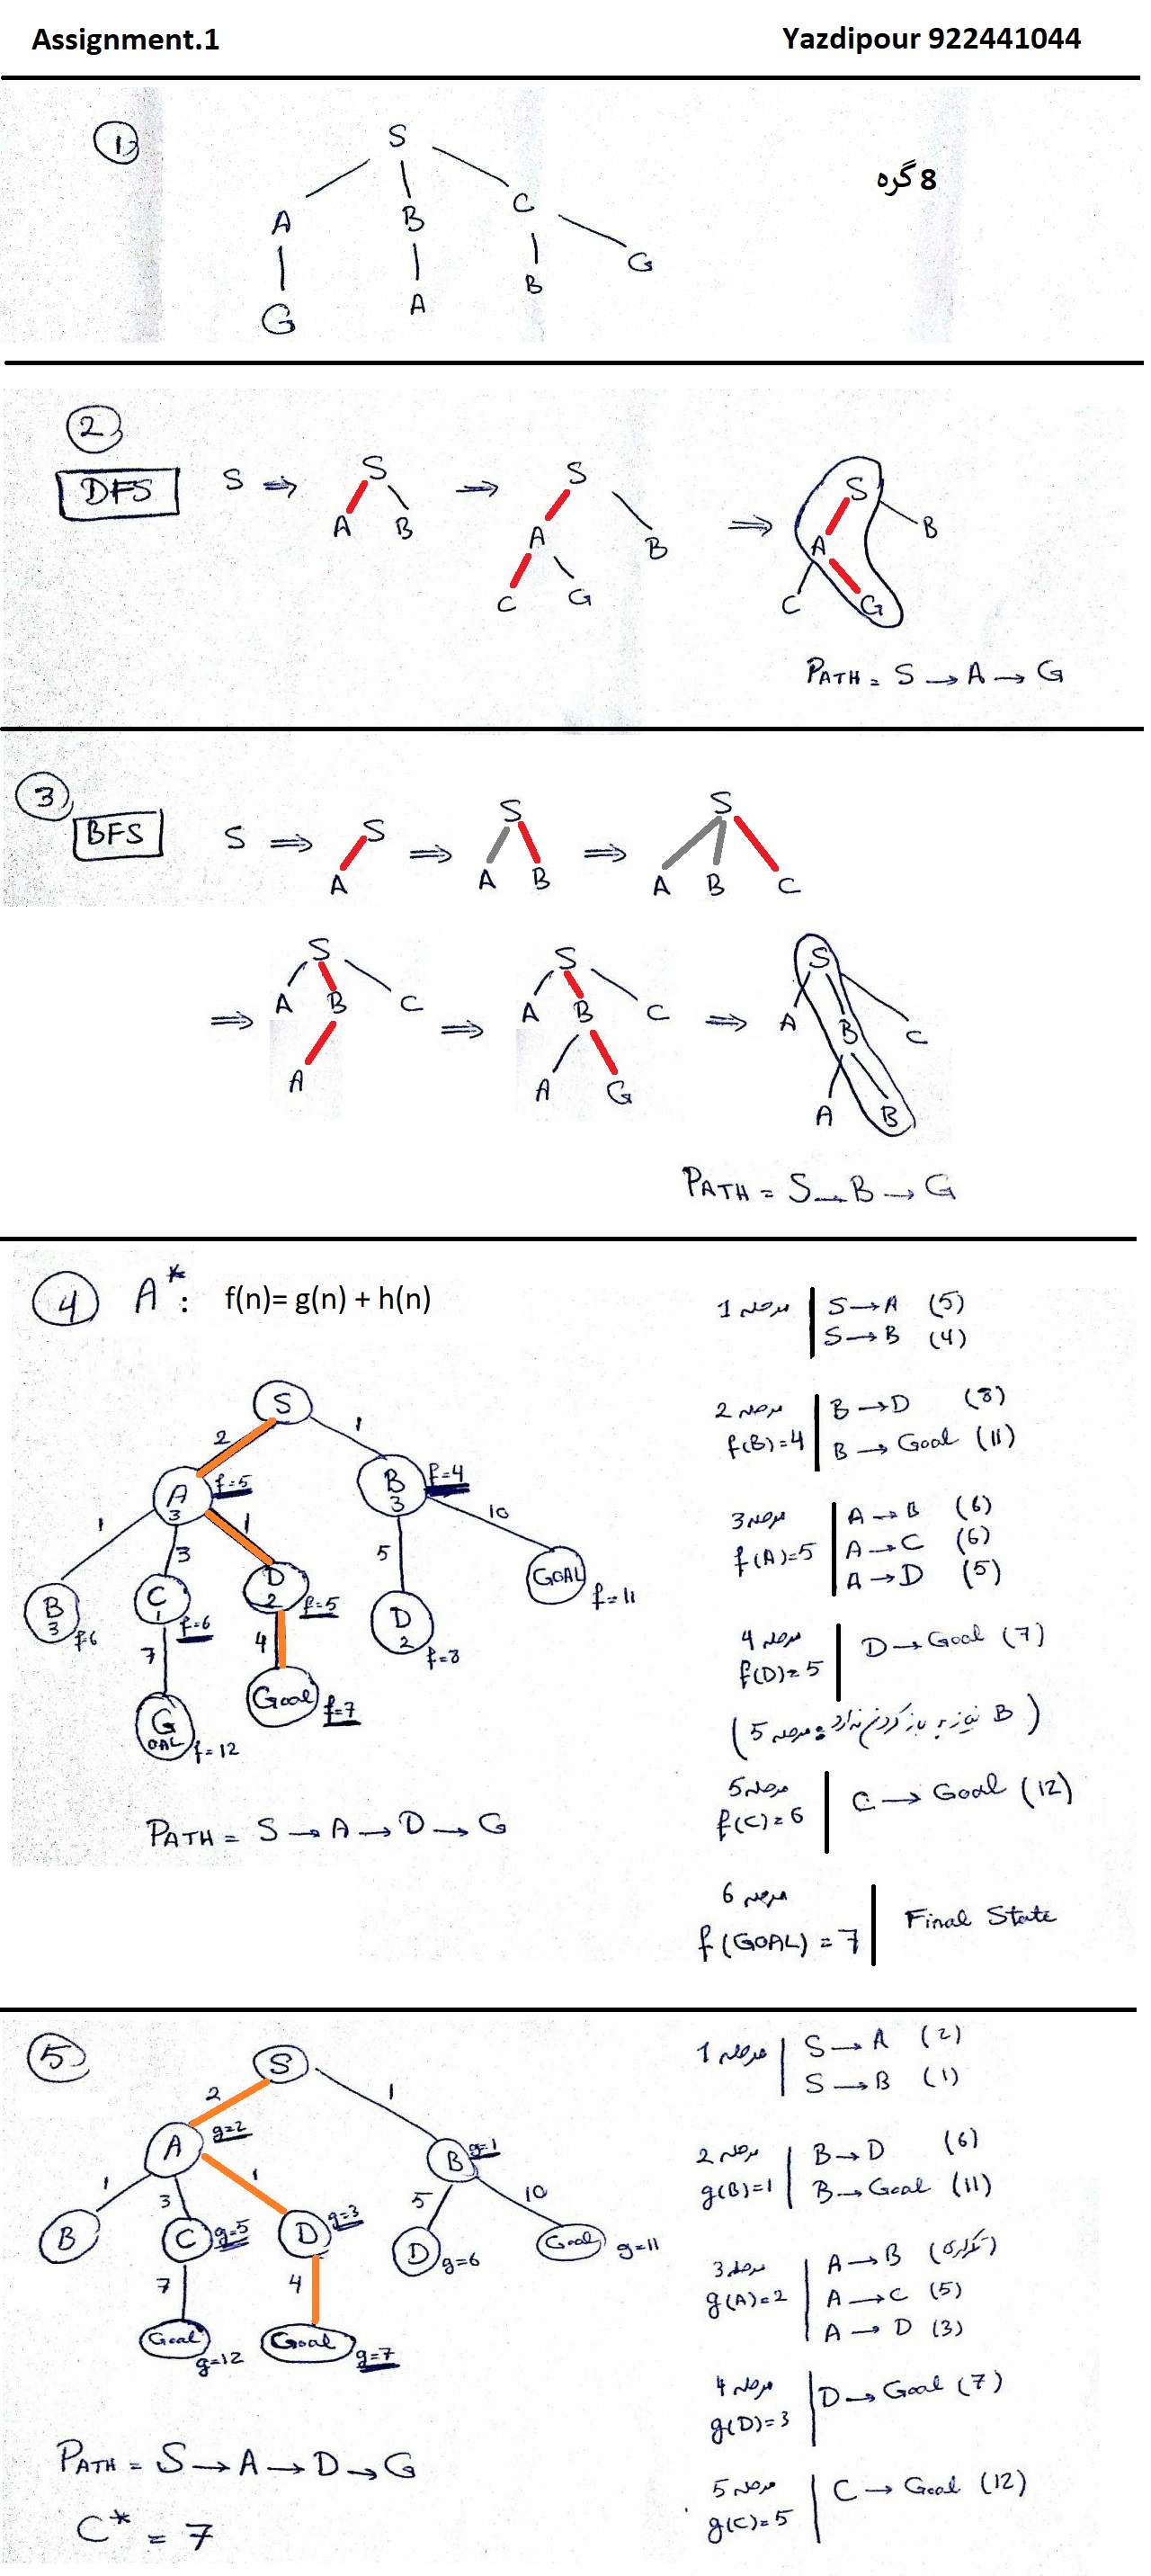 Assignment.1 Yazdipour 922441044
1
S
8 گره
A B C
G A B G
2
DFS S ⇒ S → S ⇒ S
A B A B A B
C G C G
PATH = S → A → G
3
BFS S ⇒ S ⇒ S ⇒ S
A A B A B C
⇒ S ⇒ S ⇒ S
A B C A B C A B C
A A G A B
PATH = S → B → G
4 A*: f(n)= g(n) + h(n)
S
2 1
A 3 f=5 B 3 f=4
1 3 1 5 10
B 3 f=6 C 1 f=6 D 2 f=5 D 2 f=8 GOAL f=11
7 4
GOAL f=12 Goal f=7
PATH = S → A → D → G
مرحله 1 S → A (5)
S → B (4)
مرحله 2 B → D (8)
f(B)=4 B → Goal (11)
مرحله 3 A → B (6)
f(A)=5 A → C (6)
A → D (5)
مرحله 4 D → Goal (7)
f(D)=5
(مرحله 5: B نیاز به باز کردن ندارد)
مرحله 5 C → Goal (12)
f(C)=6
مرحله 6 Final State
f(GOAL) = 7
5
S
2 1
A g=2 B g=1
1 3 1 5 10
B C g=5 D g=3 D g=6 Goal g=11
7 4
Goal g=12 Goal g=7
PATH = S → A → D → G
C* = 7
مرحله 1 S → A (2)
S → B (1)
مرحله 2 B → D (6)
g(B)=1 B → Goal (11)
مرحله 3 A → B (تکراری)
g(A)=2 A → C (5)
A → D (3)
مرحله 4 D → Goal (7)
g(D)=3
مرحله 5 C → Goal (12)
g(C)=5